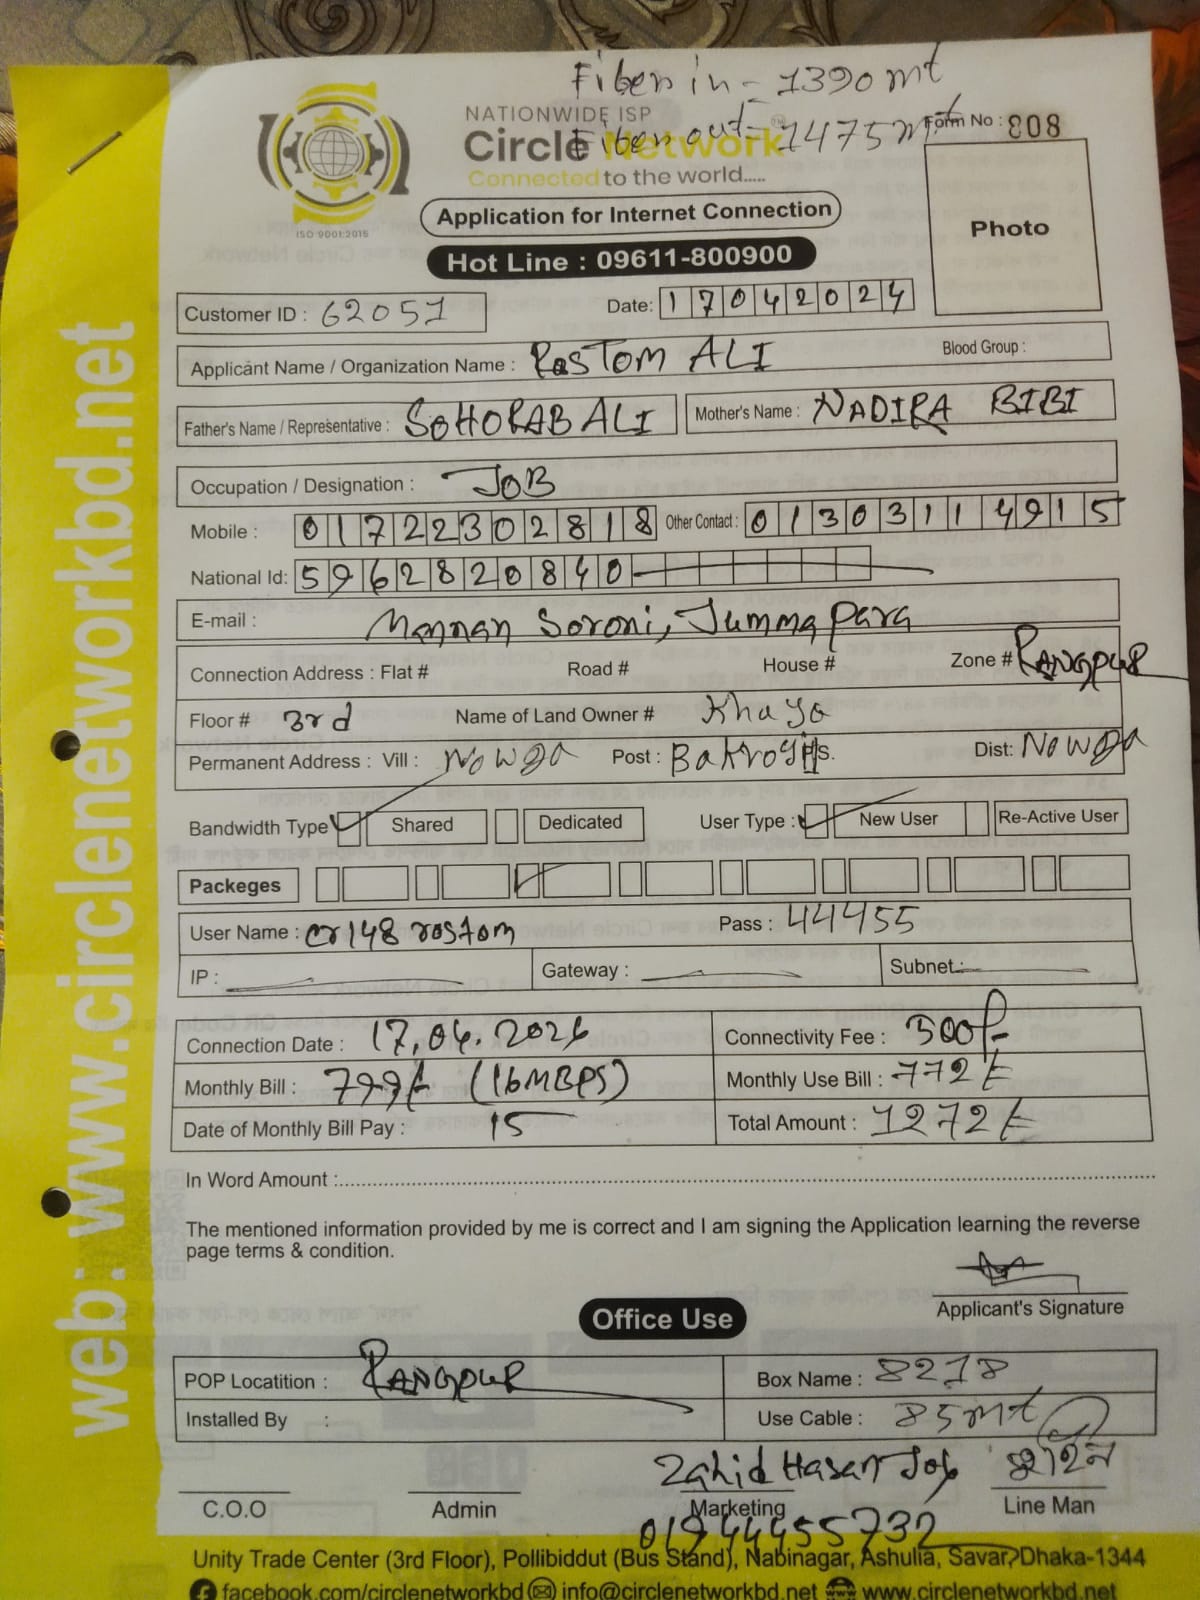 Fiber in - 1390 mt
NATIONWIDE ISP
Fiber out - 1475 mt
Form No : 808
Circle Network™
Connected to the world.....
ISO 9001:2015
Application for Internet Connection
Photo
Hot Line : 09611-800900
Customer ID : 62051 Date: 17042024
Applicant Name / Organization Name : RosTOM ALI Blood Group :
Father's Name / Representative : SOHORAB ALI Mother's Name : NADIRA BIBI
Occupation / Designation : JOB
Mobile : 01722302818 Other Contact : 01303114915
National Id: 5962820840
E-mail :
Mannan Soroni, Jumma para
Connection Address : Flat # Road # House # Zone # RANGPUR
Floor # 3rd Name of Land Owner # Khaya
Permanent Address : Vill : Nowga Post : P.S. Dist: Nowga
Bandwidth Type Shared Dedicated User Type : New User Re-Active User
Packeges
User Name : cr148rostom Pass : 44455
IP : Gateway : Subnet :
Connection Date : 17.04.2024 Connectivity Fee : 500/-
Monthly Bill : 799/- (16MBPS) Monthly Use Bill : 772/-
Date of Monthly Bill Pay : 15 Total Amount : 1272/-
In Word Amount :
The mentioned information provided by me is correct and I am signing the Application learning the reverse
page terms & condition.
Applicant's Signature
Office Use
POP Locatition : RANGPUR Box Name : 8218
Installed By : Use Cable : 85mt
Zahid Hasan
C.O.O Admin Marketing Line Man
01944455732
Unity Trade Center (3rd Floor), Pollibiddut (Bus Stand), Nabinagar, Ashulia, Savar, Dhaka-1344
facebook.com/circlenetworkbd info@circlenetworkbd.net www.circlenetworkbd.net
web: www.circlenetworkbd.net